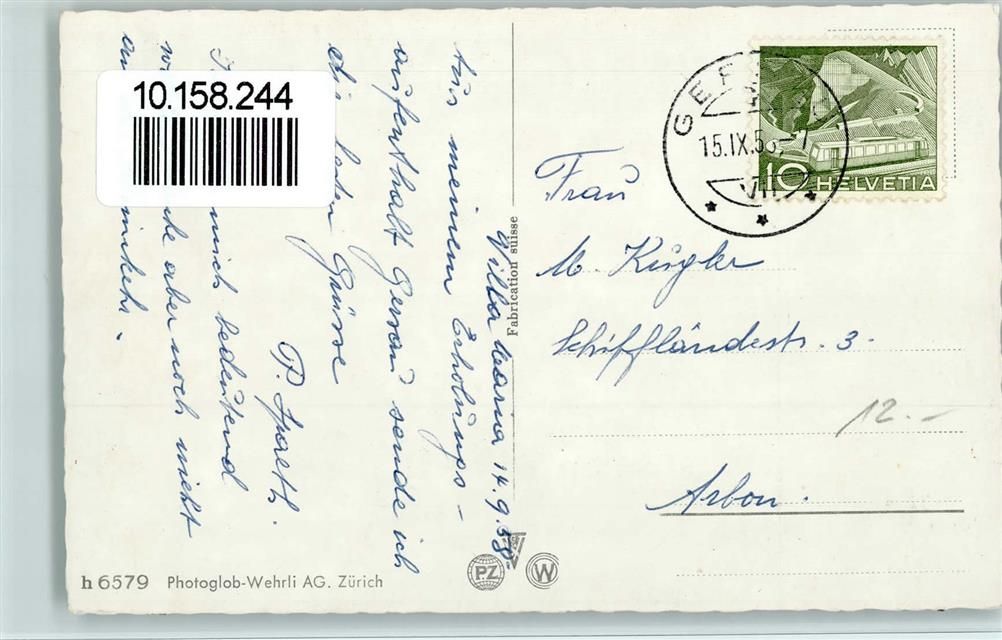 10.158.244
Villa Maria 14.9.53
Aus meinem Erholungs-
aufenthalt Gersau sende ich
die besten Grüsse
P. Spaeth.
mich bedeutend
aber noch nicht
Fabrication suisse
GER
15.IX.5 -7
VII
10 HELVETIA
Frau
M. Kugler
Schiffländestr. 3.
12.-
Arbon.
h 6579 Photoglob-Wehrli AG. Zürich
PZ
W